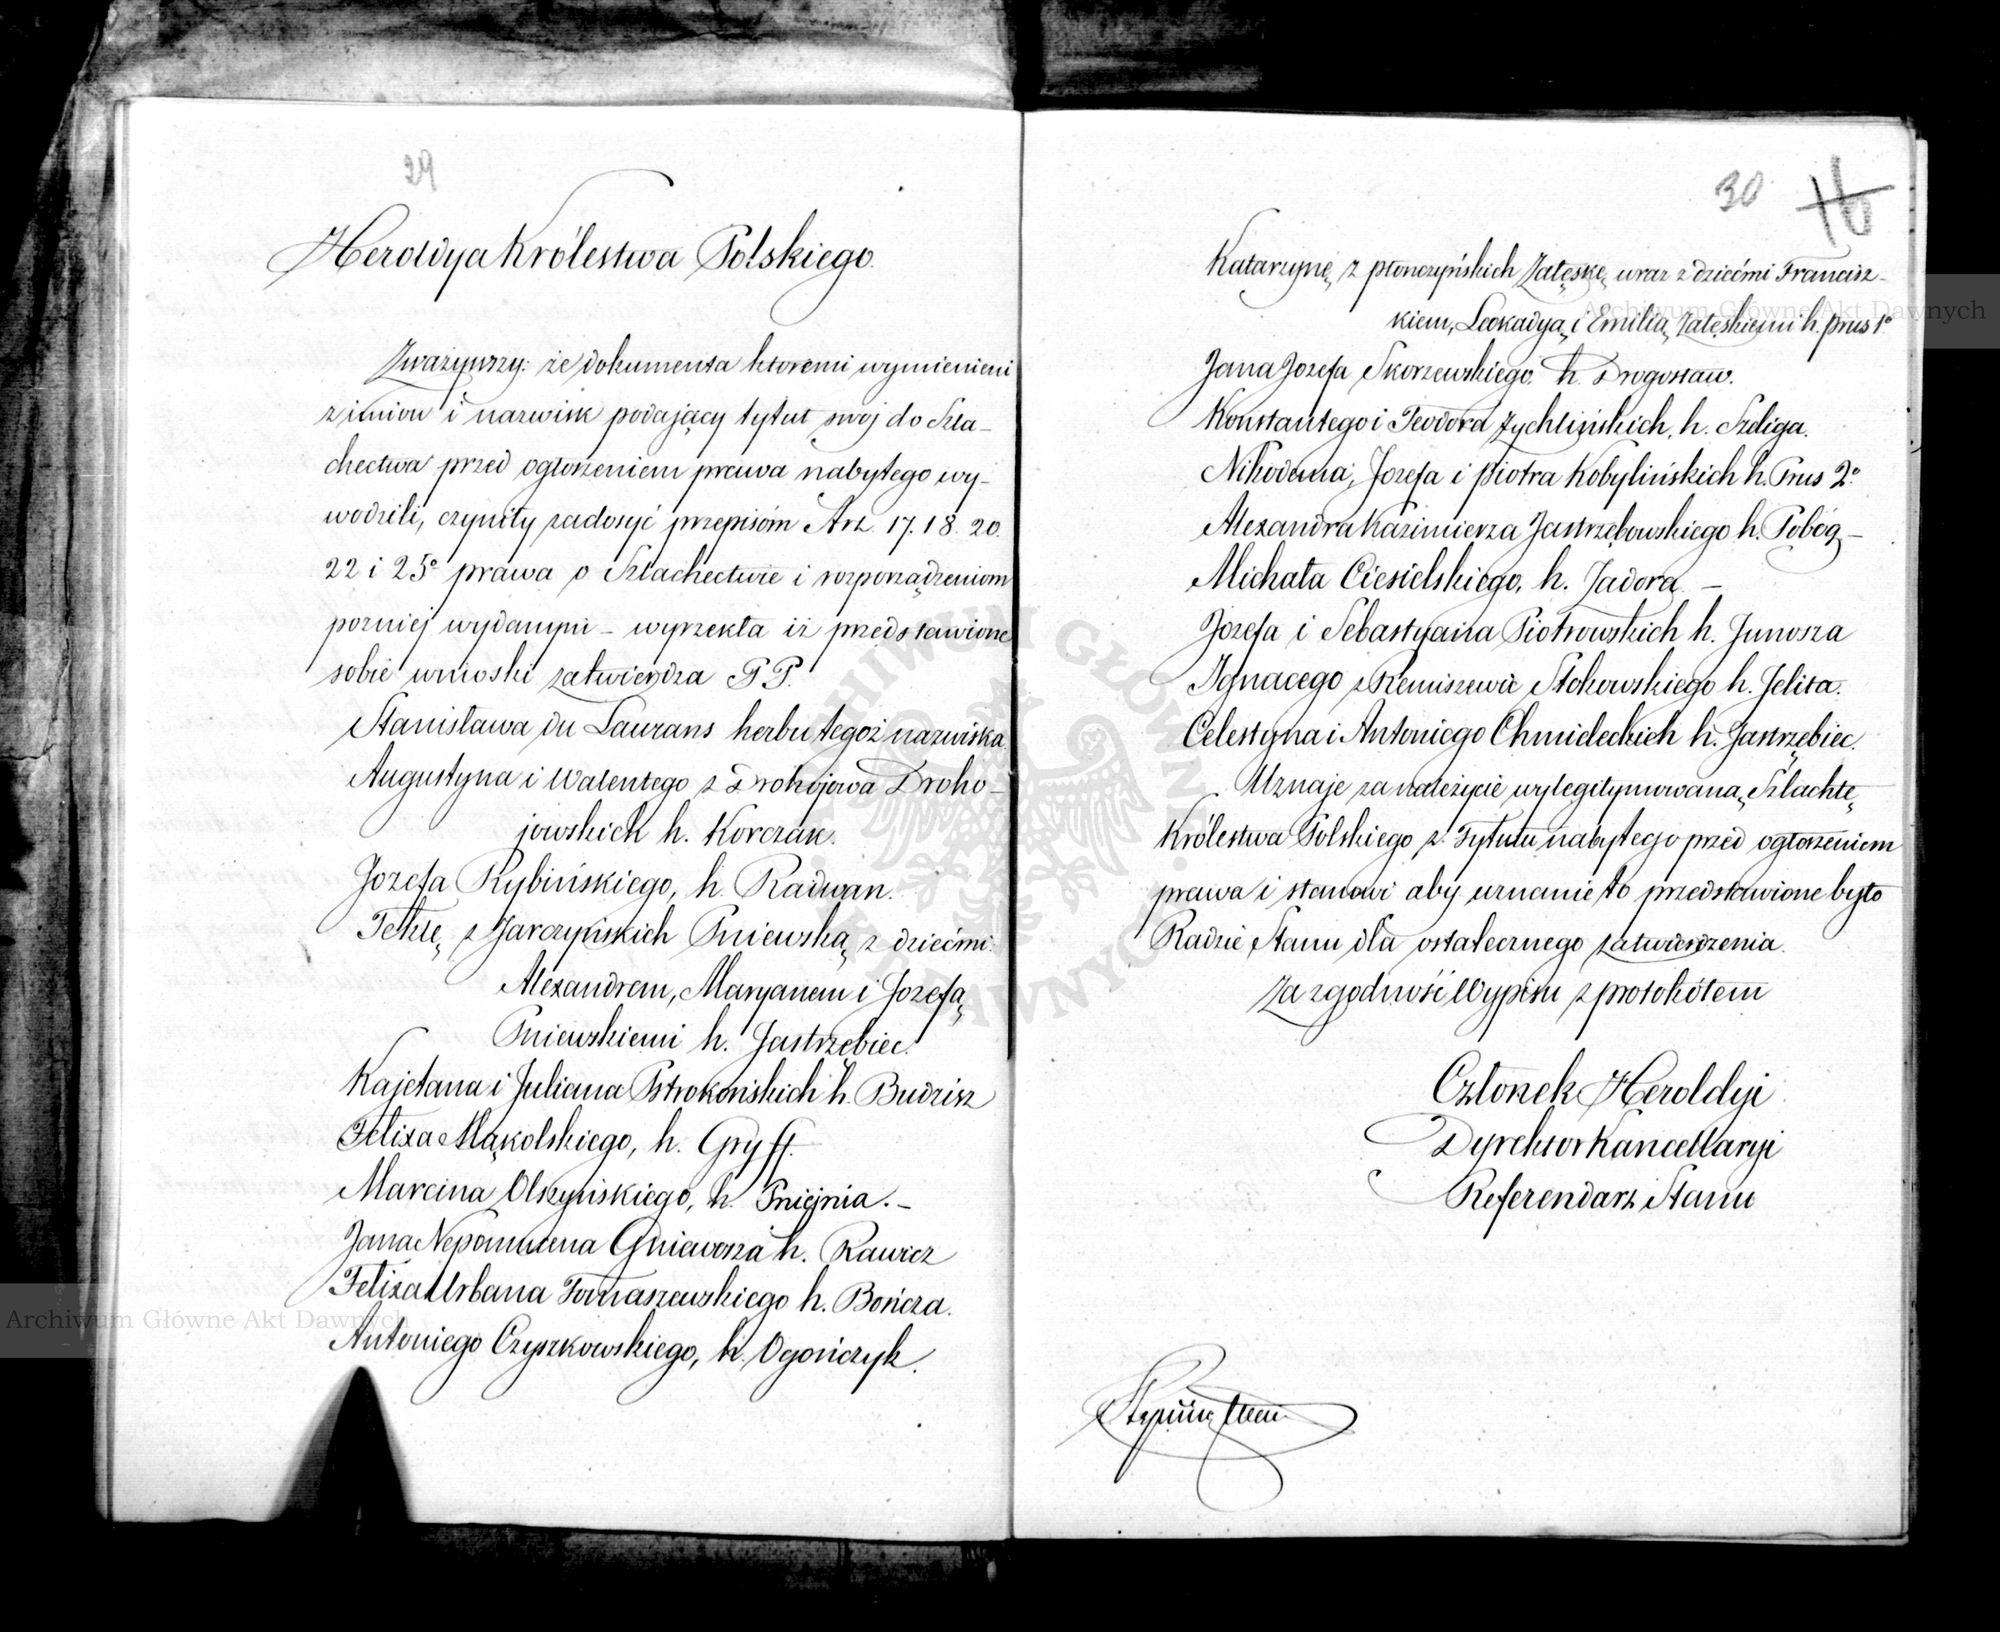 29
Heroldya Królestwa Polskiego.
Zważywszy: że dokumenta ktoremi wymienieni
z imion i nazwisk podający tytuł swój do Szla-
chectwa przed ogłoszeniem prawa nabytego wy-
wodzili, czyniły zadosyć przepisóm Art. 17. 18. 20.
22 i 25º prawa o Szlachectwie i rozporządzeniom
pozniej wydanym – wyrzekła iż przedstawione
sobie wnioski zatwierdza PP.
Stanisława du Laurans herbu tegoż nazwiska
Augustyna i Walentego z Drohojowa Droho-
jowskich h. Korczak.
Jozefa Rybińskiego, h. Radwan.
Teklę z Jarczyńskich Pniewską z dziećmi:
Alexandrem, Maryanem i Jozefą
Pniewskiemi h. Jastrzębiec.
Kajetana i Juliana Pstrokońskich h. Budzisz
Felixa Mąkolskiego, h. Gryff.
Marcina Olszyńskiego, h. Pniejnia. –
Jana Nepomucena Gniewosza h. Rawicz
Felixa Urbana Tomaszewskiego h. Bończa.
Antoniego Czyszkowskiego, h. Ogończyk.
30 16
Katarzynę z Płonczyńskich Załęskę wraz z dziećmi Francisz-
kiem, Leokadyą i Emilią Załęskiemi h. Prus 1º
Jana Jozefa Skorzewskiego. h. Drogosław.
Konstantego i Teodora Zychlińskich, h. Szeliga.
Nikodema, Jozefa i Piotra Kobylińskich h. Prus 2º
Alexandra Kazimierza Jastrzębowskiego h. Pobóg –
Michała Ciesielskiego, h. Zadora. –
Jozefa i Sebastyana Piotrowskich h. Junosza
Ignacego z Remiszewic Stokowskiego h. Jelita.
Celestyna i Antoniego Chmieleckich h. Jastrzębiec.
Uznaje za należycie wylegitymowaną Szlachtę
Królestwa Polskiego z Tytułu nabytego przed ogłoszeniem
prawa i stanowi aby uznanie to przedstawione było
Radzie Stanu dla ostatecznego zatwierdzenia.
Za zgodność Wypisu z protokółem
Członek Heroldyi
Dyrektor Kancellaryi
Referendarz Stanu
Archiwum Główne Akt Dawnych
Archiwum Główne Akt Dawnych
ARCHIWUM GŁÓWNE AKT DAWNYCH